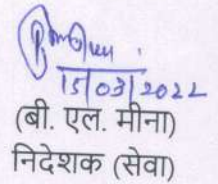 15/03/2022
(बी. एल. मीना)
निदेशक (सेवा)